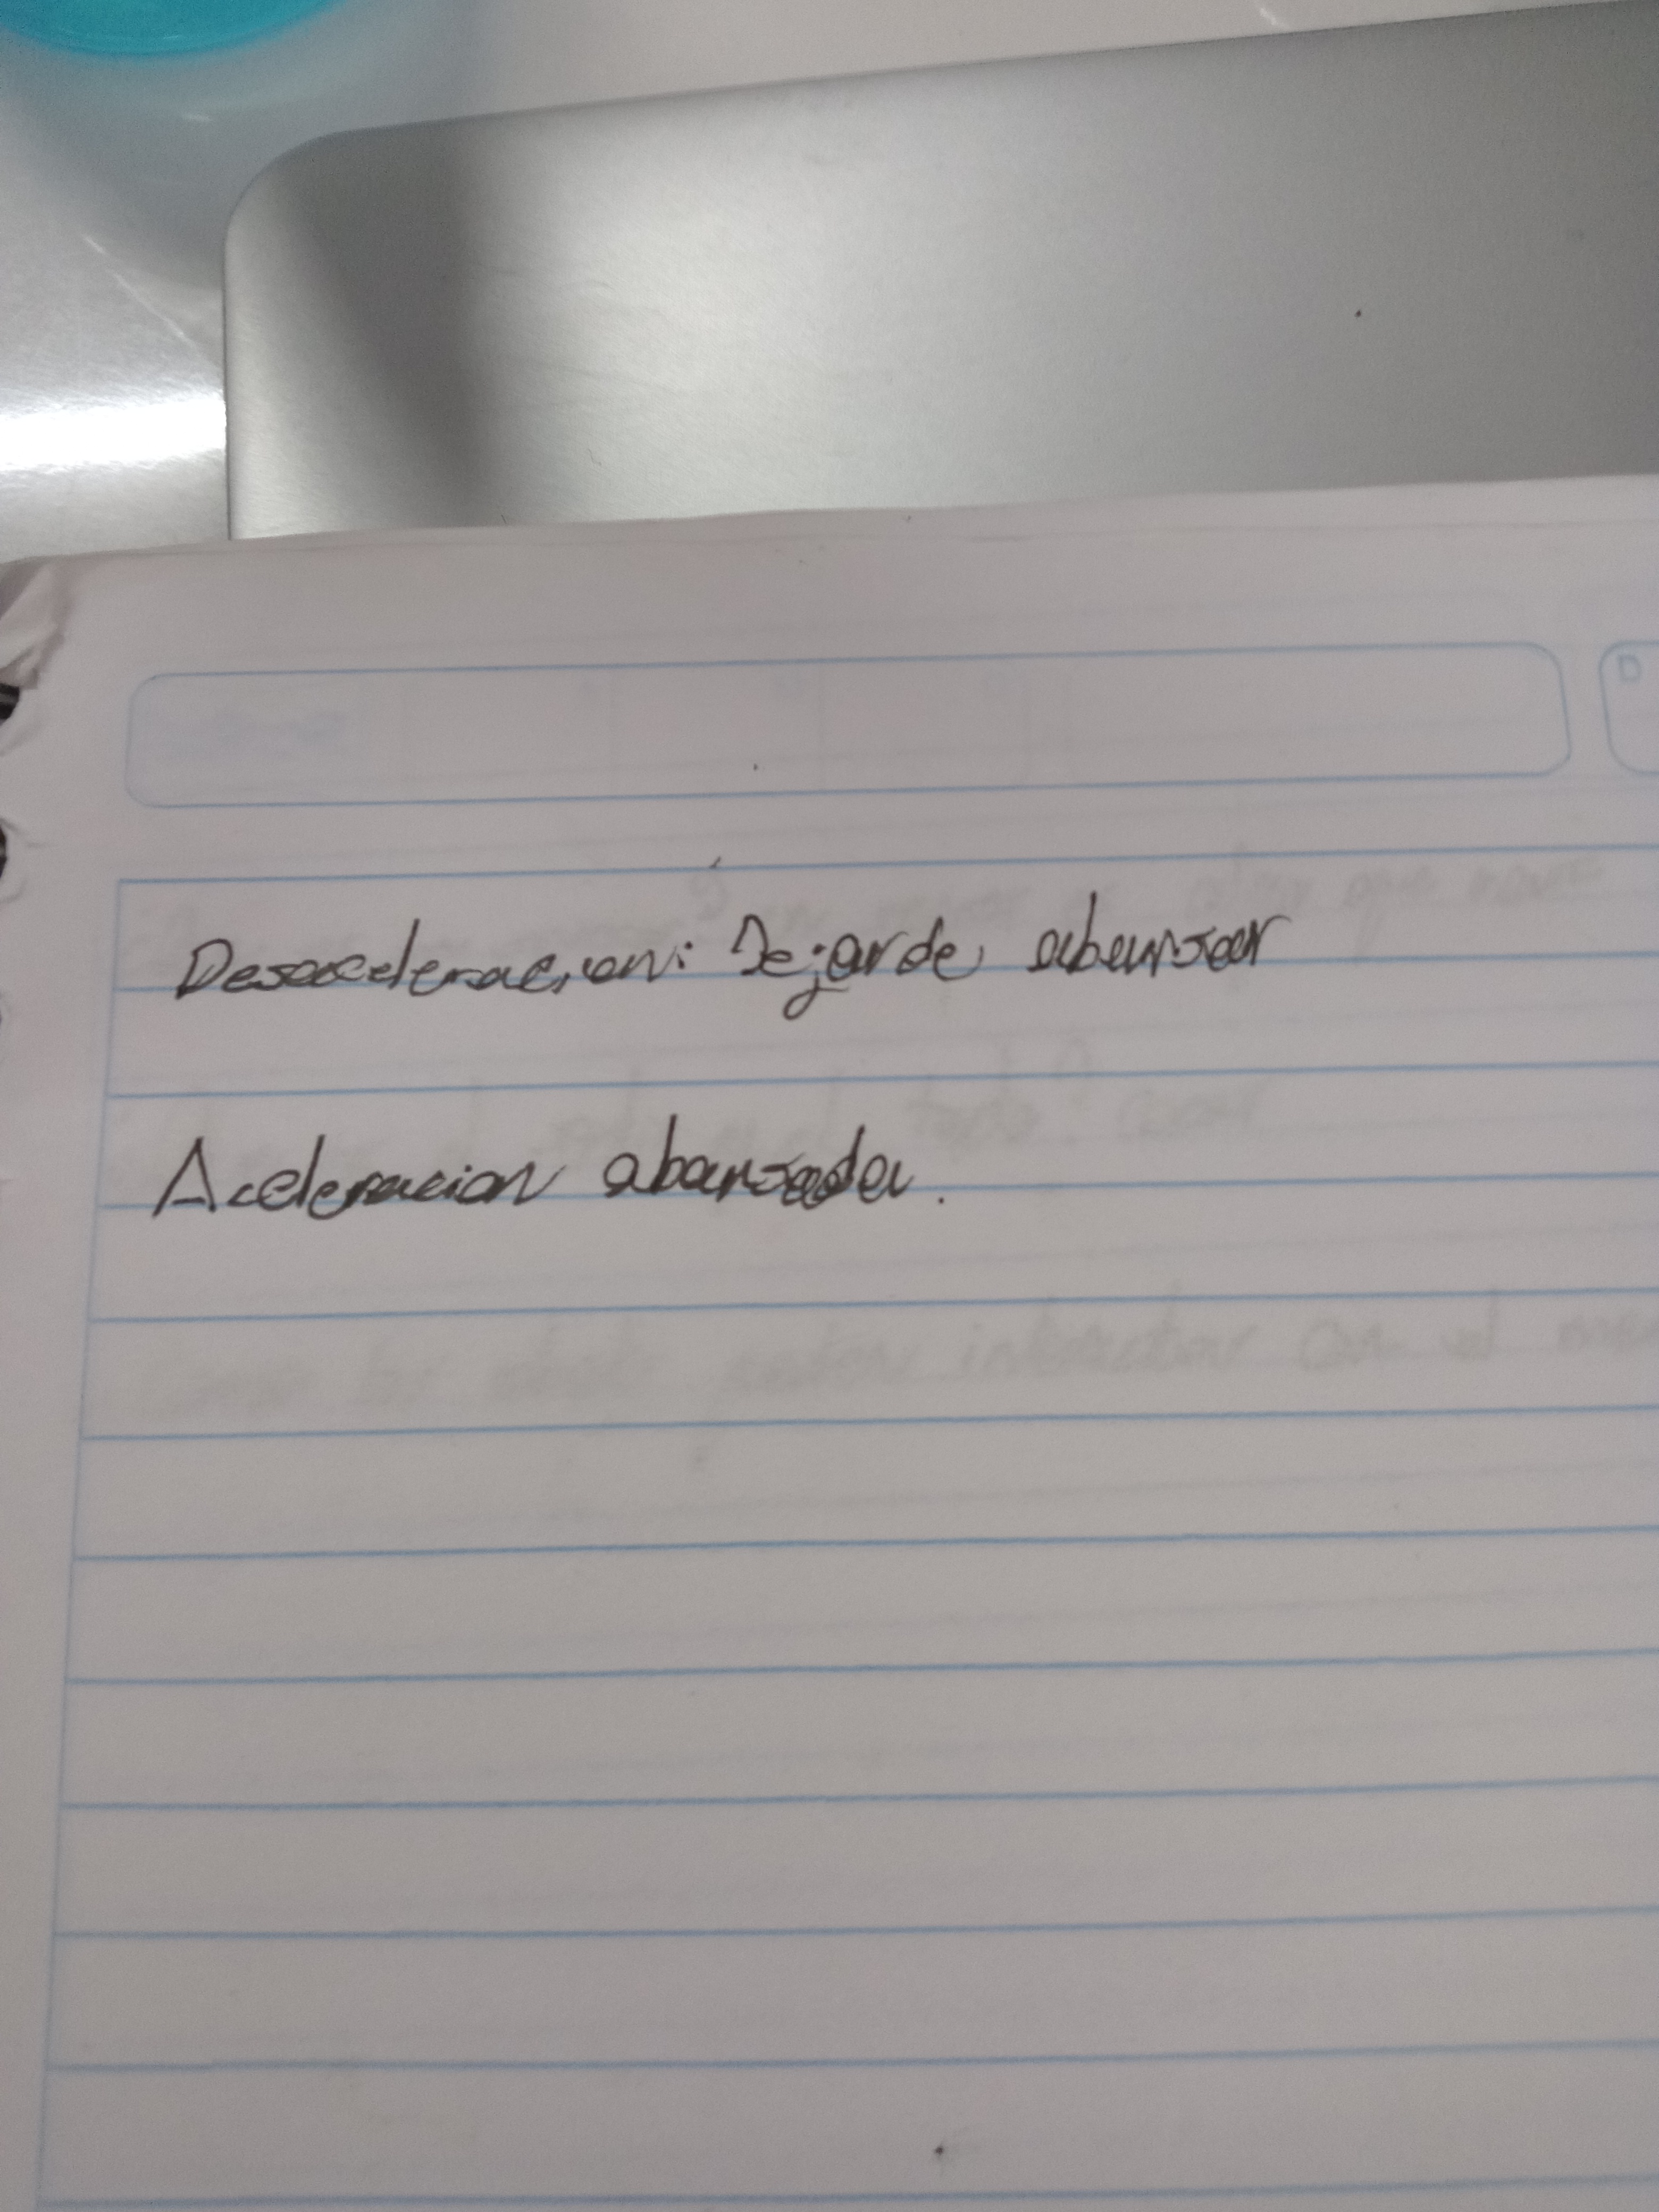 Desaceleracion: Dejar de abansar
Aceleracion abansada.
D